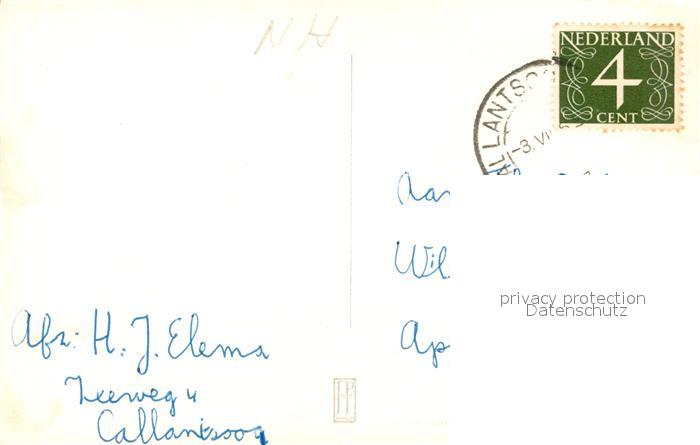 NH
NEDERLAND
4
CENT
-3.VII
Aan
Wil
Ap
privacy protection
Datenschutz
Afz: H. J. Elema
Zeeweg 4
Callantsoog